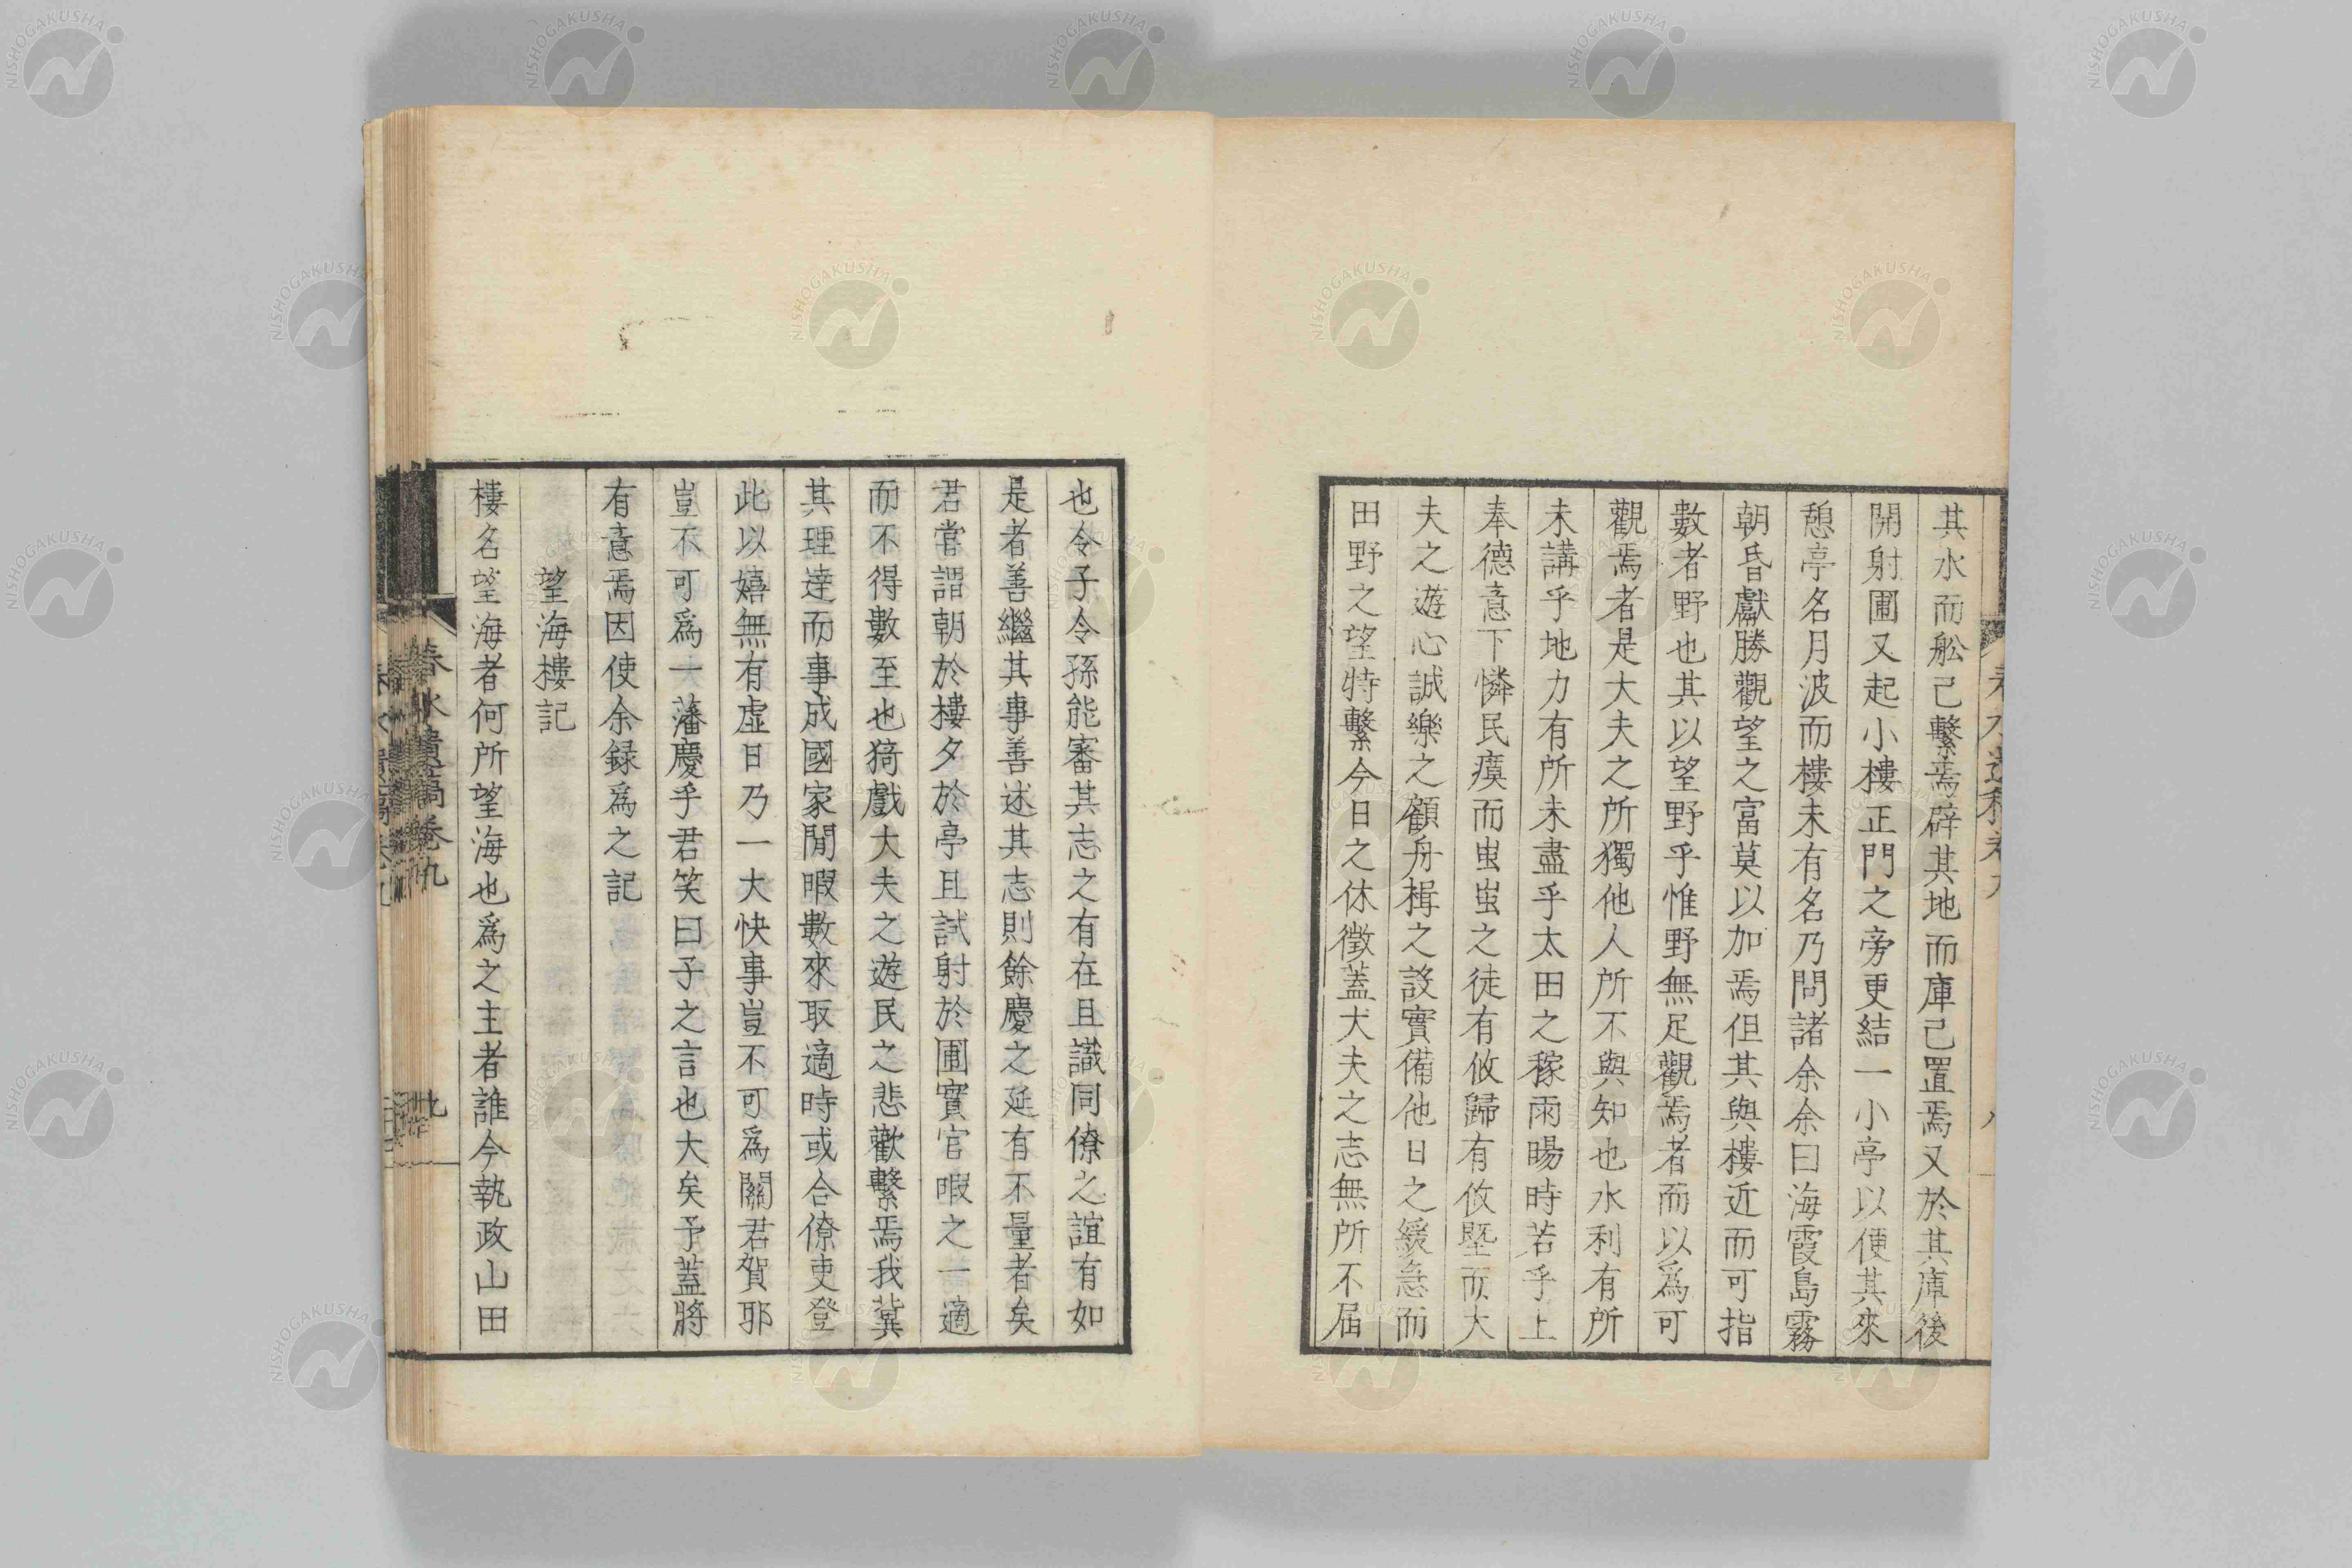 其水而舩已繫焉辟其地而庫已置焉又於其庫後
開射圃又起小樓正門之旁更結一小亭以便其來
憩亭名月波而樓未有名乃問諸余余曰海霞島霧
朝昏獻勝觀望之富莫以加焉但其與樓近而可指
數者野也其以望野乎惟野無足觀焉者而以爲可
觀焉者是大夫之所獨他人所不與知也水利有所
未講乎地力有所未盡乎太田之稼雨暘時若乎上
奉德意下憐民瘼而蚩蚩之徒有攸歸有攸塈而大
夫之遊心誠樂之顧舟楫之設實備他日之緩急而
田野之望特繫今日之休徵蓋大夫之志無所不屆
也令子令孫能審其志之有在且識同僚之誼有如
是者善繼其事善述其志則餘慶之延有不量者矣
君嘗謂朝於樓夕於亭且試射於圃實官暇之一適
而不得數至也猗戲大夫之遊民之悲歡繫焉我冀
其理達而事成國家閒暇數來取適時或合僚吏登
此以嬉無有虛日乃一大快事豈不可爲關君賀耶
豈不可爲一藩慶乎君笑曰子之言也大矣予蓋將
有意焉因使余録爲之記
望海樓記
樓名望海者何所望海也爲之主者誰今執政山田
春水遺稿卷九
九
NISHOGAKUSHA